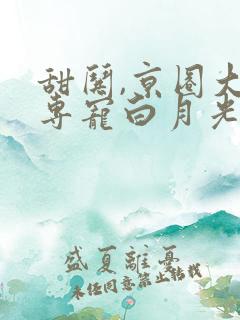 甜闖,京圈大
专寵白月光
盛夏離憂
未经同意禁止转载